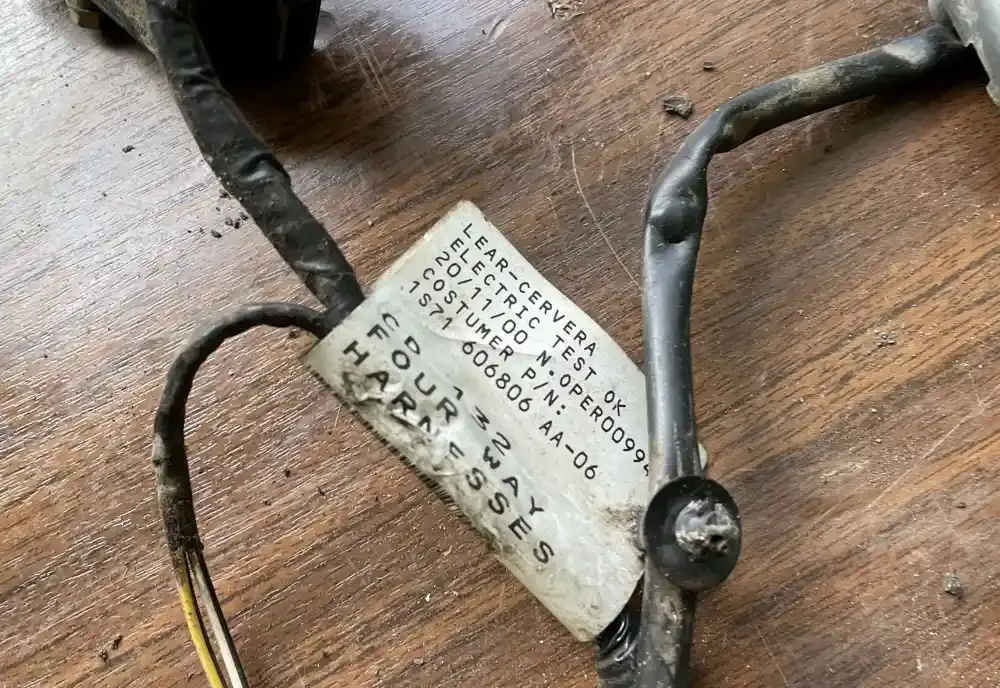 LEAR-CERVERA
ELECTRIC TEST OK
20/11/00 N.OPER00994
COSTUMER P/N:
1S71 606806 AA-06
C D 132
FOUR WAY
HARNESSES